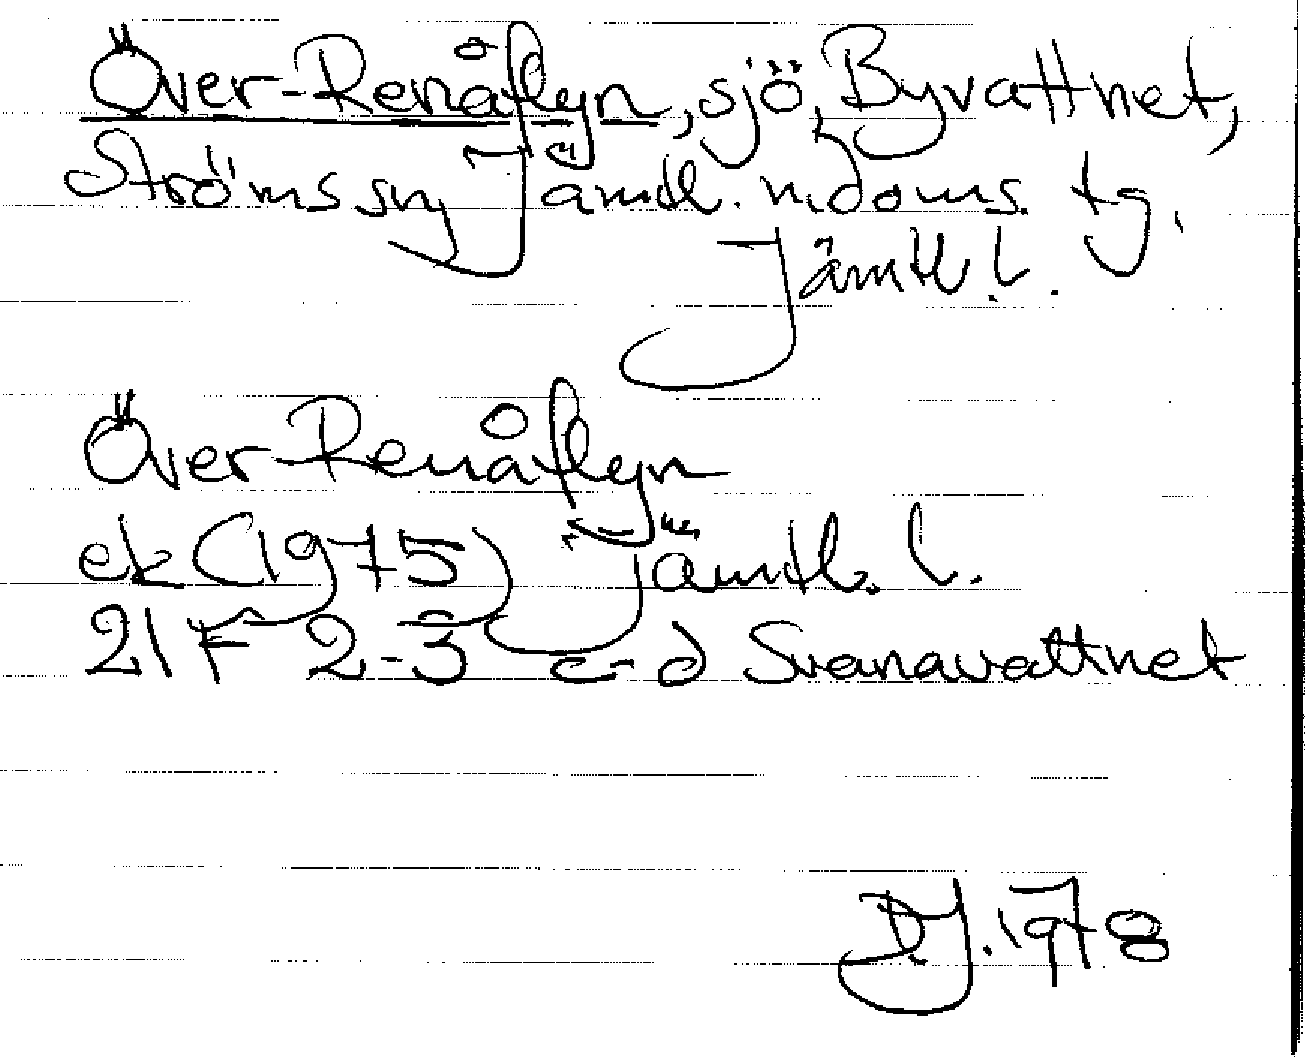 Över-Renåflyn, sjö, Byvattnet,
Ströms sn, Jämtl. n. doms. tg.
Jämtl. l.
Över-Renåflyn
ek (1975) Jämtl. l.
21 F 2-3 c-d Svanavattnet
D.J. 1978